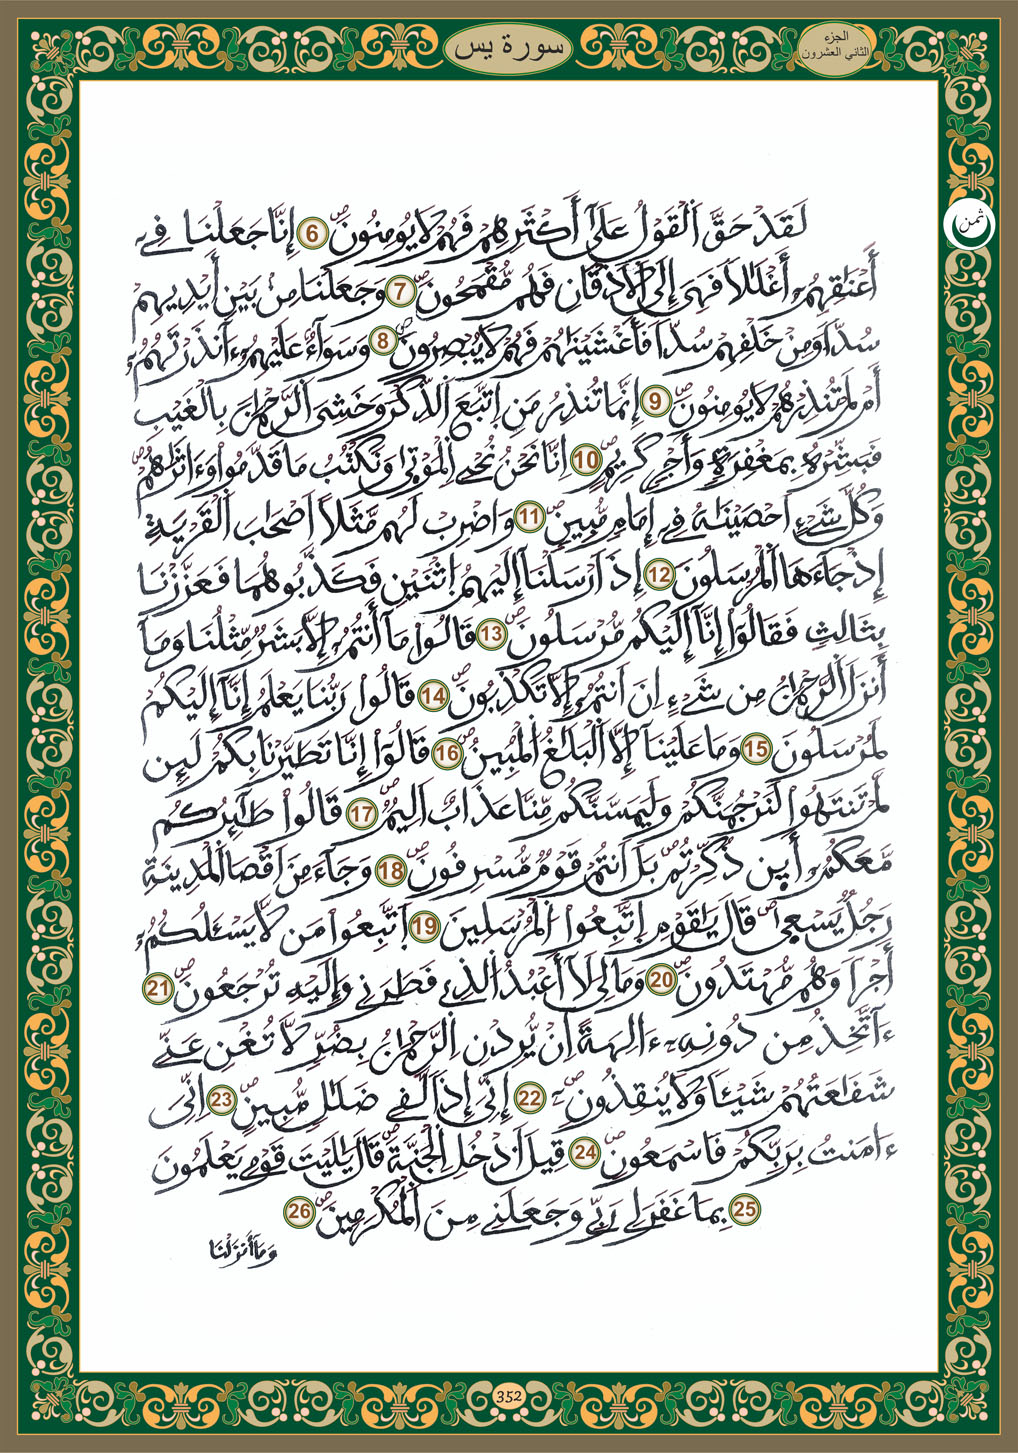 الجزء
الثاني العشرون
سورة يس
ثمن
لَقَدْ حَقَّ اَلْقَوْلُ عَلَىٰٓ أَكْثَرِهِمْ فَهُمْ لَا يُومِنُونَۖ 6 إِنَّا جَعَلْنَا فِےٓ
أَعْنَٰقِهِمُۥٓ أَغْلَٰلاٗ فَهِيَ إِلَى اَلْأَذْقَانِ فَهُم مُّقْمَحُونَۖ 7 وَجَعَلْنَا مِنۢ بَيْنِ أَيْدِيهِمْ
سُدّاٗ وَمِنْ خَلْفِهِمْ سُدّاٗ فَأَغْشَيْنَٰهُمْ فَهُمْ لَا يُبْصِرُونَۖ 8 وَسَوَآءٌ عَلَيْهِمُۥٓ ءَآنذَرْتَهُمُۥٓ
أَمْ لَمْ تُنذِرْهُمْ لَا يُومِنُونَۖ 9 إِنَّمَا تُنذِرُ مَنِ اِتَّبَعَ اَلذِّكْرَ وَخَشِيَ اَلرَّحْمَٰنَ بِالْغَيْبِ
فَبَشِّرْهُ بِمَغْفِرَةٖ وَأَجْرٖ كَرِيمٍۖ 10 اِنَّا نَحْنُ نُحْيِ اِلْمَوْتَىٰ وَنَكْتُبُ مَا قَدَّمُواْ وَءَاثَٰرَهُمْۖ
وَكُلَّ شَےْءٍ اَحْصَيْنَٰهُ فِےٓ إِمَامٖ مُّبِينٖۖ 11 وَاضْرِبْ لَهُم مَّثَلاً اَصْحَٰبَ اَلْقَرْيَةِ
إِذْ جَآءَهَا اَلْمُرْسَلُونَ 12 إِذَ اَرْسَلْنَآ إِلَيْهِمُ اُثْنَيْنِ فَكَذَّبُوهُمَا فَعَزَّزْنَا
بِثَالِثٖ فَقَالُوٓاْ إِنَّآ إِلَيْكُم مُّرْسَلُونَۖ 13 قَالُواْ مَآ أَنتُمُۥٓ إِلَّا بَشَرٞ مِّثْلُنَا وَمَآ
أَنزَلَ اَلرَّحْمَٰنُ مِن شَےْءٍ اِنَ اَنتُمُۥٓ إِلَّا تَكْذِبُونَۖ 14 قَالُواْ رَبُّنَا يَعْلَمُ إِنَّآ إِلَيْكُمْ
لَمُرْسَلُونَ 15 وَمَا عَلَيْنَآ إِلَّا اَلْبَلَٰغُ اُلْمُبِينُۖ 16 قَالُوٓاْ إِنَّا تَطَيَّرْنَا بِكُمْ لَئِن
لَّمْ تَنتَهُواْ لَنَرْجُمَنَّكُمْ وَلَيَمَسَّنَّكُم مِّنَّا عَذَابٌ اَلِيمٞۖ 17 قَالُواْ طَٰٓئِرُكُم
مَّعَكُمُۥٓ أَئِن ذُكِّرْتُمۖ بَلَ اَنتُمْ قَوْمٞ مُّسْرِفُونَۖ 18 وَجَآءَ مِنَ اَقْصَا اَلْمَدِينَةِ
رَجُلٞ يَسْعَىٰۖ قَالَ يَٰقَوْمِ اِتَّبِعُواْ اُلْمُرْسَلِينَ 19 اَتَّبِعُواْ مَن لَّا يَسْـَٔلُكُمُۥٓ
أَجْراٗ وَهُم مُّهْتَدُونَۖ 20 وَمَا لِيَ لَآ أَعْبُدُ اُلذِے فَطَرَنِے وَإِلَيْهِ تُرْجَعُونَۖ 21
ءَآتَّخِذُ مِن دُونِهِۦٓ ءَالِهَةً اِنْ يُّرِدْنِ اِلرَّحْمَٰنُ بِضُرّٖ لَّا تُغْنِ عَنِّے
شَفَٰعَتُهُمْ شَيْـٔاٗ وَلَا يُنقِذُونِۦٓۖ 22 إِنِّيَ إِذاٗ لَّفِے ضَلَٰلٖ مُّبِينٍۖ 23 اِنِّيَ
ءَامَنتُ بِرَبِّكُمْ فَاسْمَعُونِۖ 24 قِيلَ اَدْخُلِ اِلْجَنَّةَۖ قَالَ يَٰلَيْتَ قَوْمِے يَعْلَمُونَ
25 بِمَا غَفَرَ لِے رَبِّے وَجَعَلَنِے مِنَ اَلْمُكْرَمِينَۖ 26
وَمَآ أَنزَلْنَا
352